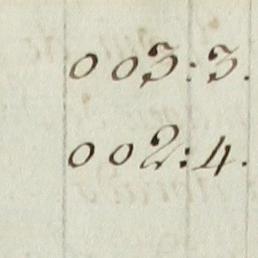 0 03:3.
0 02:4.